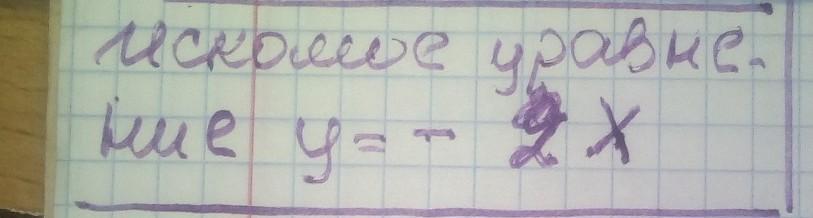 искомое уравне-
ние y = - 2x